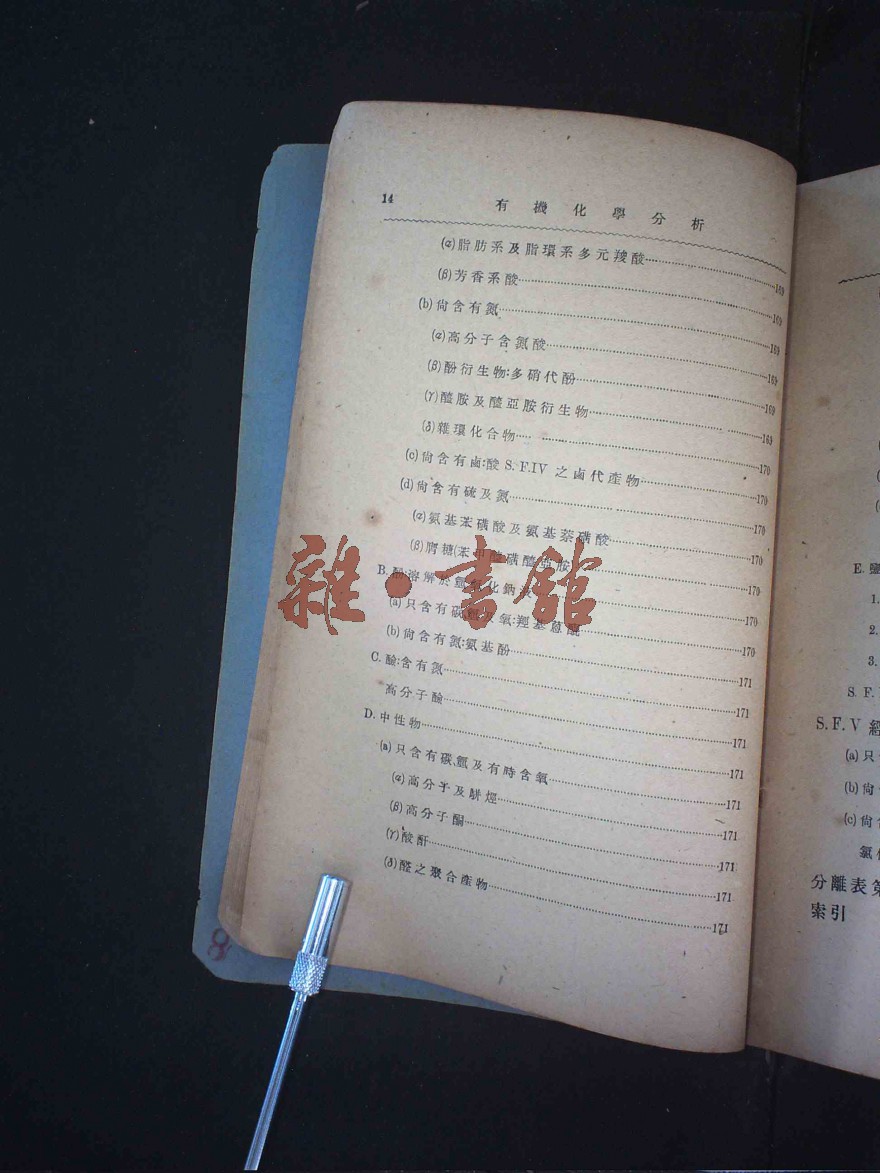 14 有機化學分析
(α)脂肪系及脂環系多元羧酸……169
(β)芳香系酸……169
(b)尙含有氮……169
(α)高分子含氮酸……169
(β)酚衍生物:多硝代酚……169
(γ)醯胺及醯亞胺衍生物……169
(δ)雜環化合物……170
(c)尙含有鹵:酸 S. F.IV 之鹵代產物……170
(d)尙含有硫及氮……170
(α)氨基苯磺酸及氨基萘磺酸……170
(β)膺糖(苯甲醯磺醯亞胺)……170
B.酚:溶解於氫氧化鈉液……170
(a)只含有碳氫及氧:羥基蒽醌……170
(b)尙含有氮:氨基酚……171
C.鹼:含有氮……171
高分子鹼……171
D.中性物……171
(a)只含有碳、氫及有時含氧……171
(α)高分子及駢烴……171
(β)高分子酮……171
(γ)酸酐……171
(δ)醛之聚合產物……171
雜·書館
8
E.鹽
1.
2.
3.
S. F.
S.F.V 經
(a)只
(b)尙
(c)尙
氯
分離表第
索引